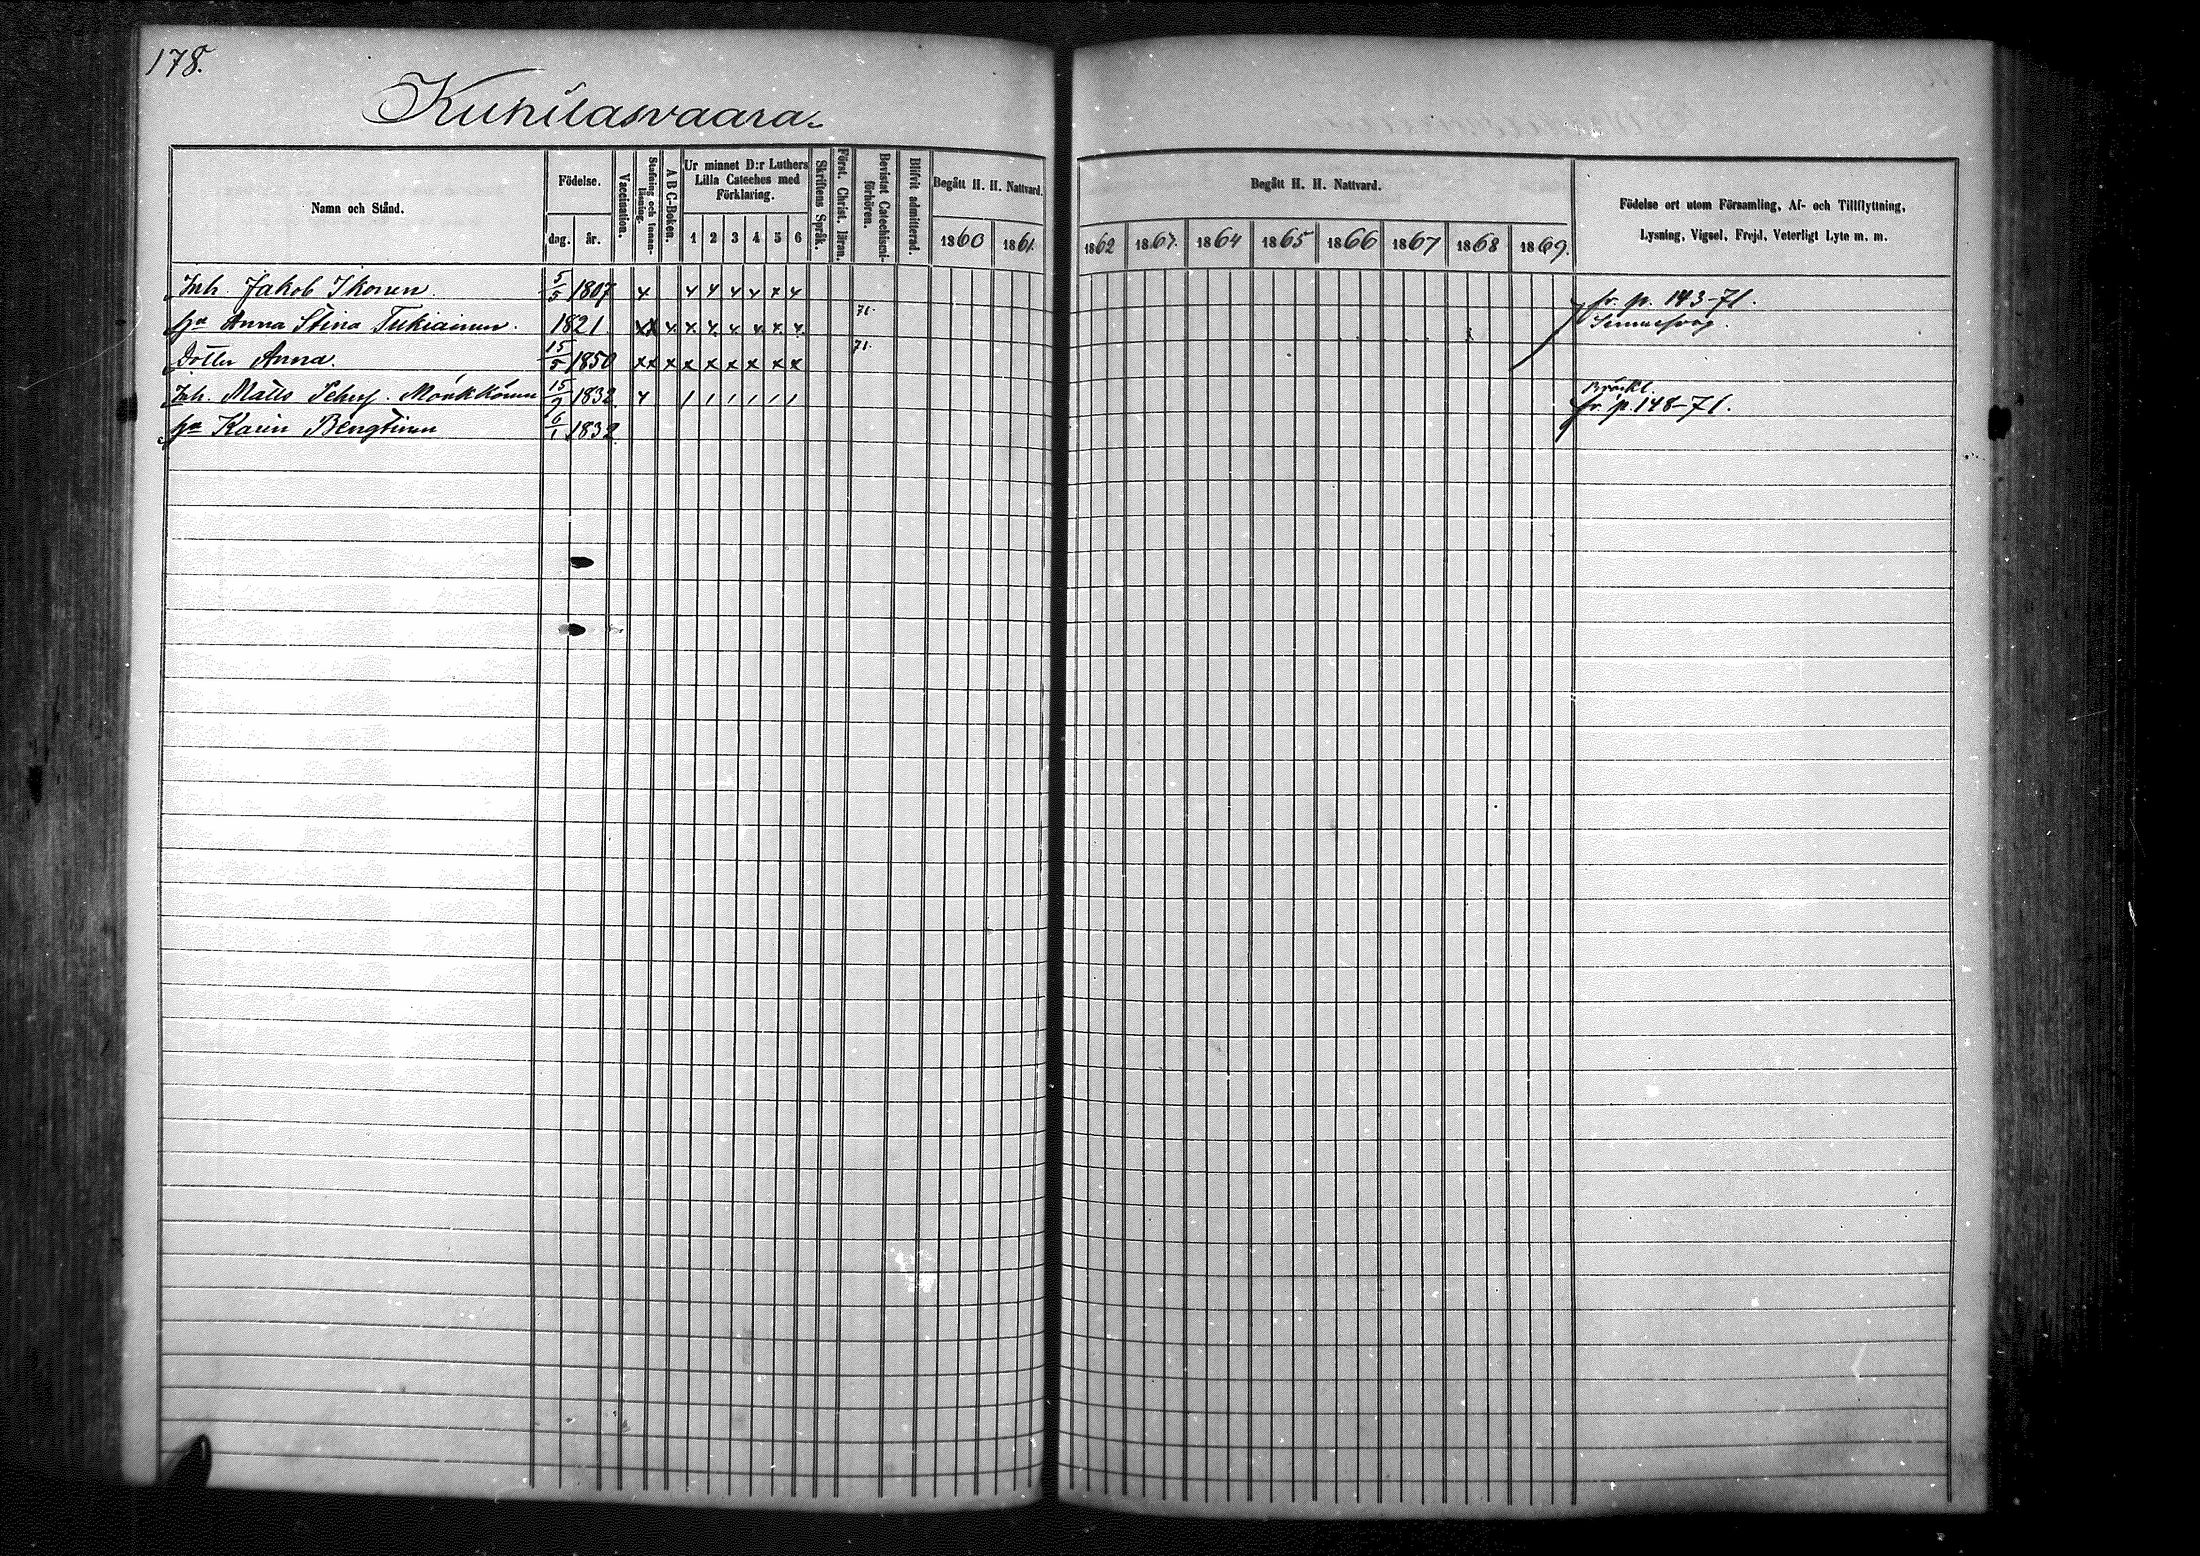 178.
Kuhilasvaara.
Namn och Stånd.
Födelse.
dag. år.
Vaccination.
Stafning och Innanläsning.
A B C-Boken.
Ur minnet D:r Luthers Lilla Cateches med Förklaring.
1 2 3 4 5 6
Skriftens Språk.
Först. Christ. läran.
Bevistat Catechismi-förhören.
Blifvit admitterad.
Begått H. H. Nattvard.
1860 1861.
Begått H. H. Nattvard.
1862 1863. 1864 1865 1866 1867 1868 1869.
Födelse ort utom Församling, Af- och Tillflyttning,
Lysning, Vigsel, Frejd, Veterligt Lyte m. m.
Inh. Jakob Ikonen. 5/5 1807 x x x x x x x fr. p. 143-71.
Ha Anna Stina Tukiainen. 1821. xx x x x x x x x 71.
Dotter Anna. 15/5 1850 xx x x x x x x x 71.
Inh. Matts Mönkkönen 15/9 1832. x / / / / / / fr. p. 148-71.
Ha Karin Bengtinen 6/1 1832.